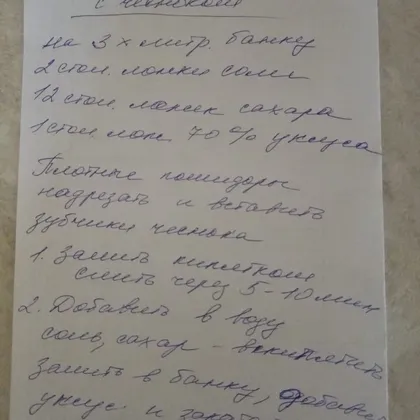 с чесноком
на 3х литр. банку
2 стол. ложки соли
12 стол. ложек сахара
1 стол. лож. 70% уксуса
Плотные помидоры
надрезать и вставить
зубчики чеснока
1. Залить кипятком
слить через 5-10 мин
2. Добавить в воду
соль, сахар - вскипятить
залить в банку, добавить
уксус и